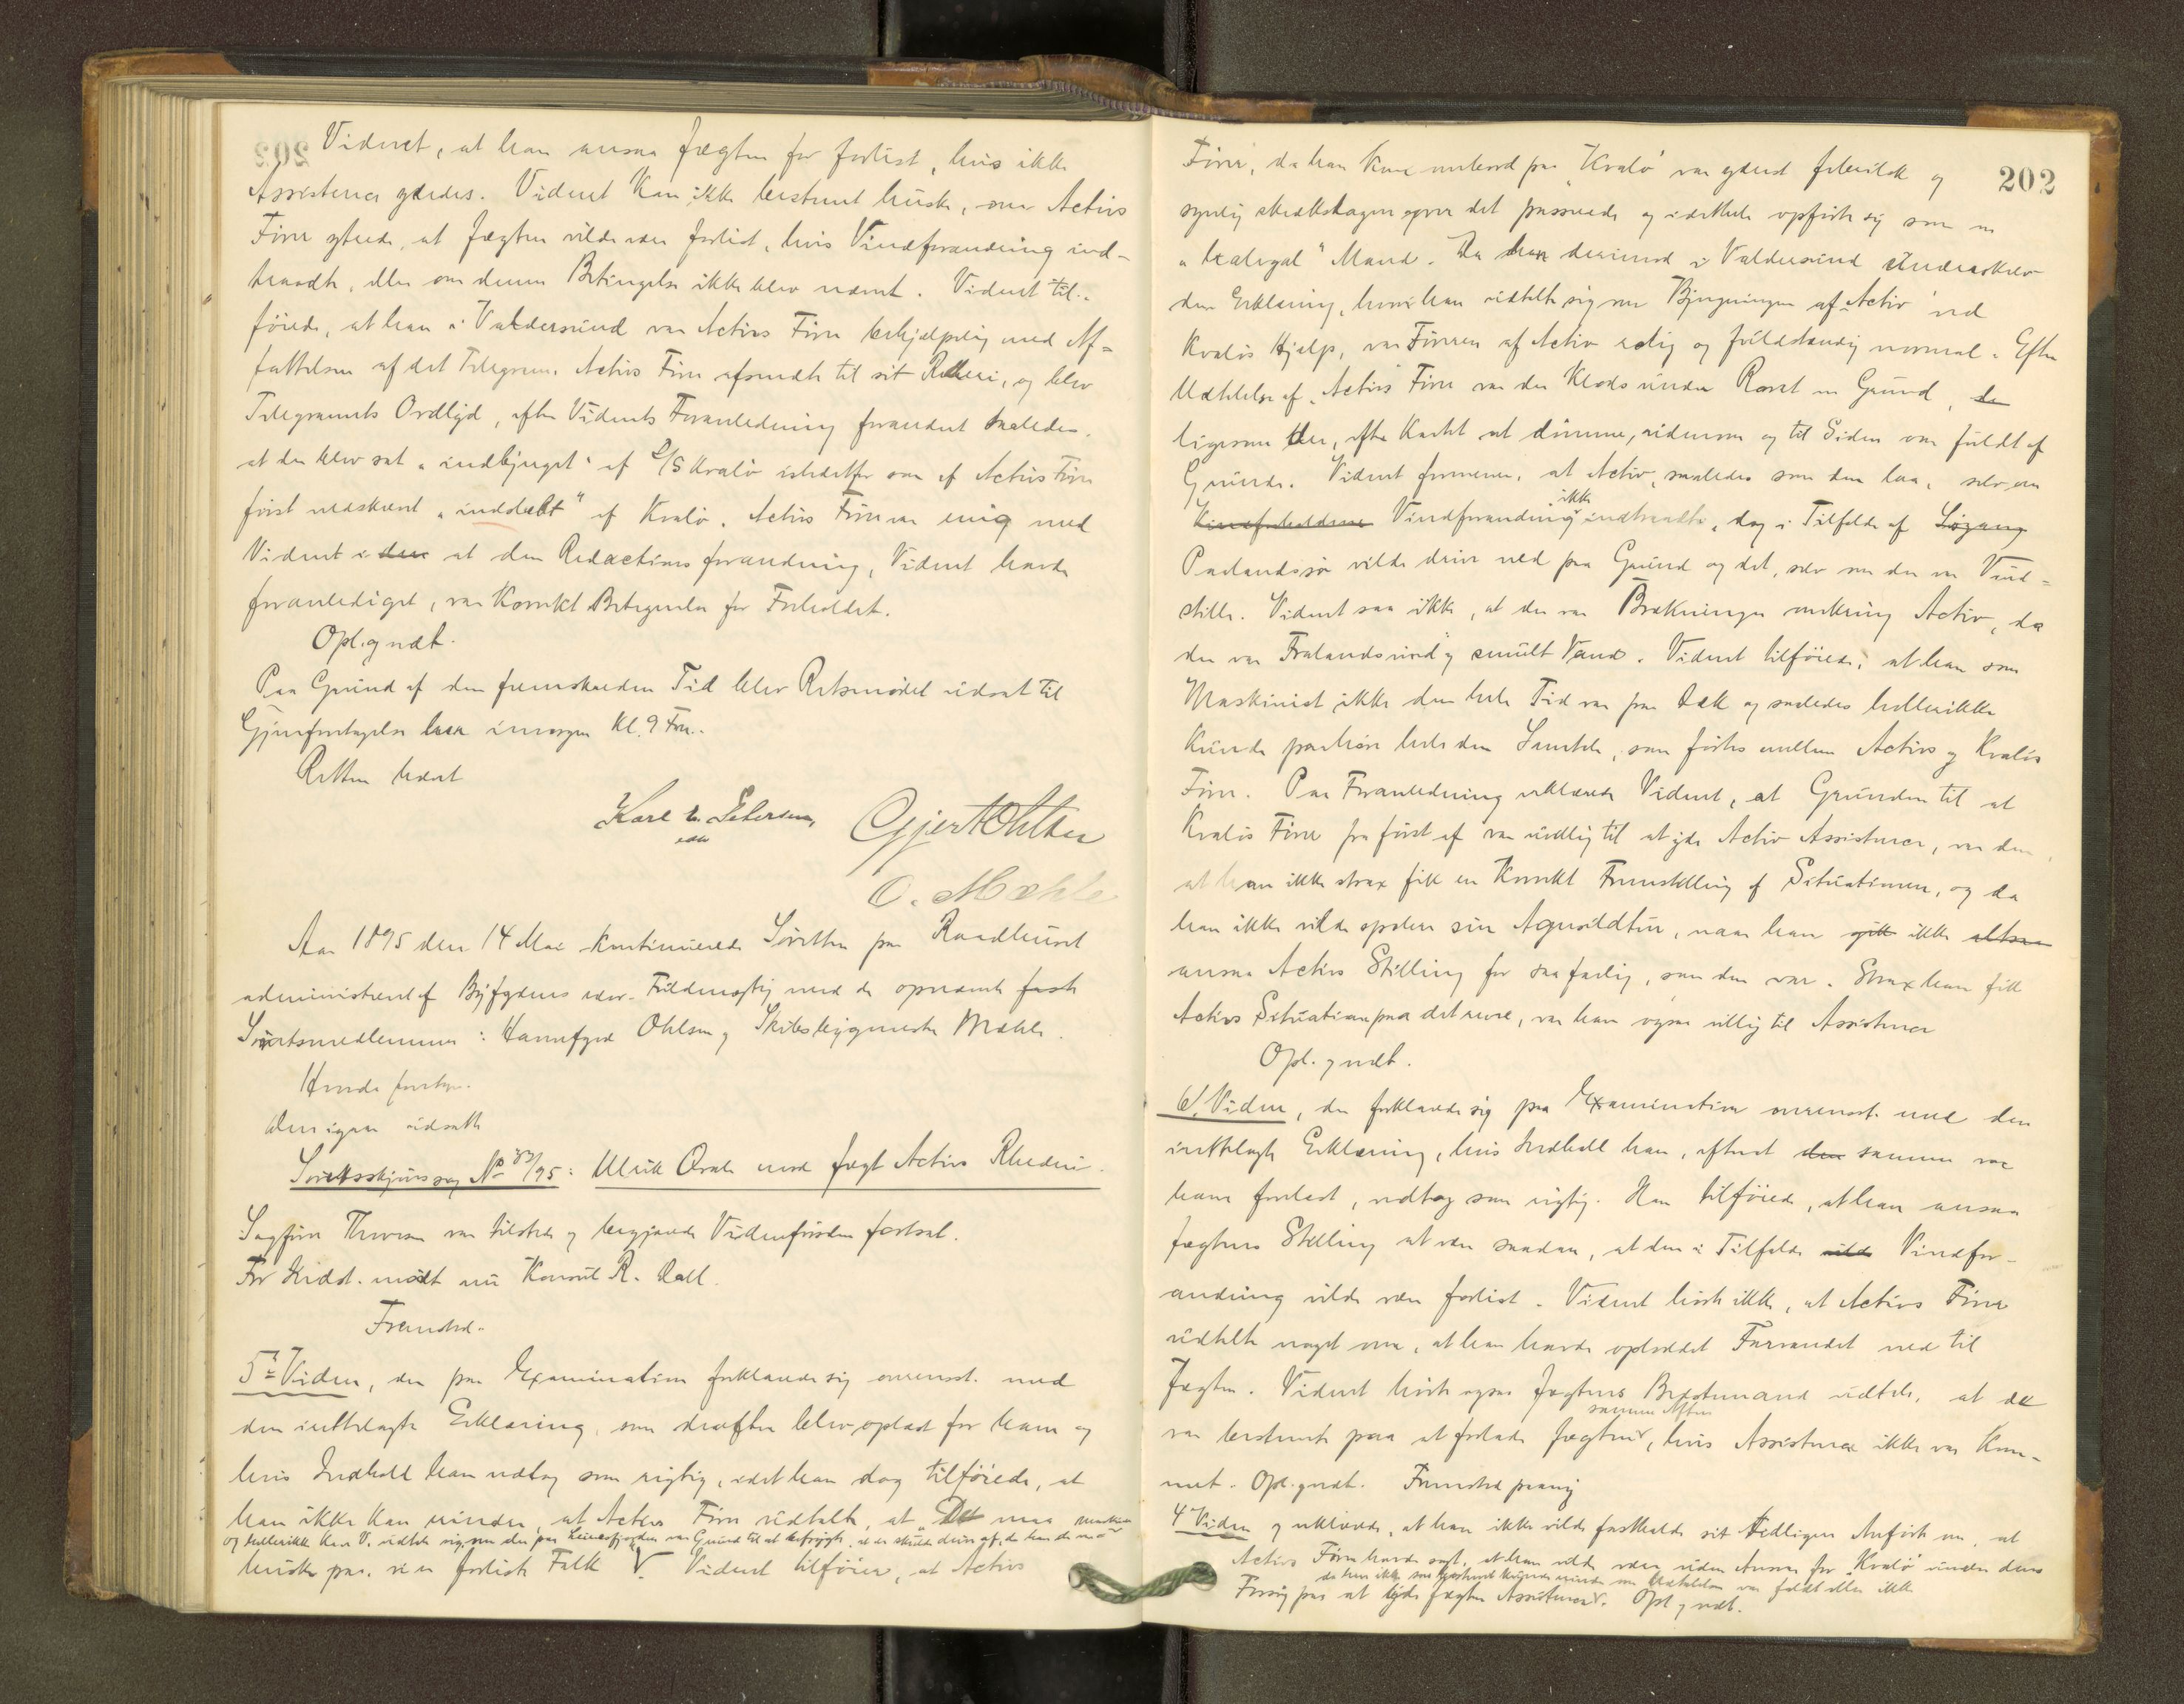 Vidnet, at han ansaa Jægten for forlist, hvis ikke
Assistence ydedes. Vidnet kan ikke bestemt huske, om Activs
Fører ytrede, at Jægten vilde være forlist, hvis Vindforandring ind-
traadte, eller om denne Betingelse ikke blev nævnt. Vidnet til-
føiede, at han i Valdersund var Activs Fører behjælpelig med Af-
fattelsen af det Telegram, Activs Fører afsendte til sit Rhederi, og blev
Telegramets Ordlyd, efter Vidnets Foranledning forandret saaledes,
at der blev sat "indbjerget" af D/S Kvalø istedetfor som af Activs Fører
først nedskrevet "indslæbt" af Kvalø. Activs Fører var enig med
Vidnet i den at den Redactionsforandring, Vidnet havde
foranlediget, var korrekt Betegnelse for Forholdet.
Opl. og vedt.
Paa Grund af den fremskredne Tid blev Retsmødet udsat til
Gjenforetagelse her imorgen Kl. 9 Form.
Retten hævet
Karl L. Petersen Gjert Ohlsen
edv
O. Mæhle
Aar 1895 den 14 Mai kontinuerede Søretten paa Raadhuset
administreret af Byfogdens edsv. Fuldmægtig med de opnævnte faste
Søretsmedlemmer: Havnefoged Ohlsen og Skibsbygmester Mæhle.
Hvorda foretoges
den igaar udsatte
Søretsskjønssag No 33/95: Ulrik Qvale mod Jægt Activs Rhederi.
Sagfører Thoresen var tilstede og begjærede Vidneførslen fortsat.
For Indst. mødte nu Konsul R. Kall.
Fremstod
5te Vidne, der paa Examination forklarede sig overensst. med
den indtilagte Erklæring, som derefter blev oplæst for ham og
hvis Indhold han vedtog som rigtig, idet han dog tilføiede, at
han ikke kan mindes, at Activs Fører udtalte, at "Det maa
og hellerikke kan V. udtale sig, om der paa var Grund til at befrygte, at
huske paa, vi er forliste Folk V. Vidnet tilføier, at Activs
202
Fører, da han kom ombord paa "Kvalø" var ganske febrilsk og
synlig skrækslagen over det passerede og idethele opførte sig som en
"halvgal" Mand. Da han derimod i Valdersund underskrev
den Erklæring, hvori han udtalte sig om Bjergningen af "Activ" ved
Kvaløs Hjælp, var Føreren af Activ rolig og fuldstændig normal. Efter
Udtalelse af "Activs" Fører var der klods under Roret en Grund, de
ligesom der, efter Kartet at dømme, videre og til Siden var fuldt af
Grunde. Vidnet formener, at Activ, saaledes som den laa, selv om
Vindforholdene Vindforandring ikke indtraadte, dog i Tilfælde af Søgang
Paalandssjø vilde drive ned paa Grund og det, selv om der var Vind-
stille. Vidnet saa ikke, at der var Brækninger omkring Activ, da
der var Fralandsvind og smult Vand. Vidnet tilføiede, at han som
Maskinist ikke den hele Tid var paa Dæk og saaledes hellerikke
kunde paahøre hele den Samtale, som førtes mellem Activs og Kvaløs
Fører. Paa Foranledning erklærede Vidnet, at Grunden til at
Kvaløs Fører fra først af var uvillig til at yde Activ Assistence, var den,
at han ikke strax fik en korrekt Fremstilling af Situationen, og da
han ikke vilde opofre sin Agnsildtur, naar han gik ikke altsaa
ansaa Activs Stilling for saa farlig, som den var. Strax han fik
Activs Situation paa det rene, var han ogsaa villig til Assistence
Opl. og vedt.
6. Vidne, der forklarede sig paa Examination overensst. med den
indtilagte Erklæring, hvis Indhold han, efterat den samme var
ham forelæst, vedtog som rigtig. Han tilføiede, at han ansaa
Jægtens Stilling at være saadan, at den i Tilfælde vilde Vindfor-
andring vilde være forlist. Vidnet hørte ikke, at Activs Fører
udtalte noget om, at han havde oploddet Farvandet ned til
Jægten. Vidnet hørte ogsaa Jægtens Bedstemand udtale, at de
samme Aften
var bestemt paa at forlade Jægten, hvis Assistence ikke var kom-
met. Opl. og vedt. Fremstod paany
4 Vidne og erklærede, at han ikke vilde fastholde sit tidligere Anførte om, at
Activs Fører havde sagt, at han vilde være uden Ansvar for "Kvalø" under dens
da han ikke saa bestemt kunde mindes om Udtalelsen var faldt eller ikke
Forsøg paa at yde Jægten Assistence. Opl. og vedt.